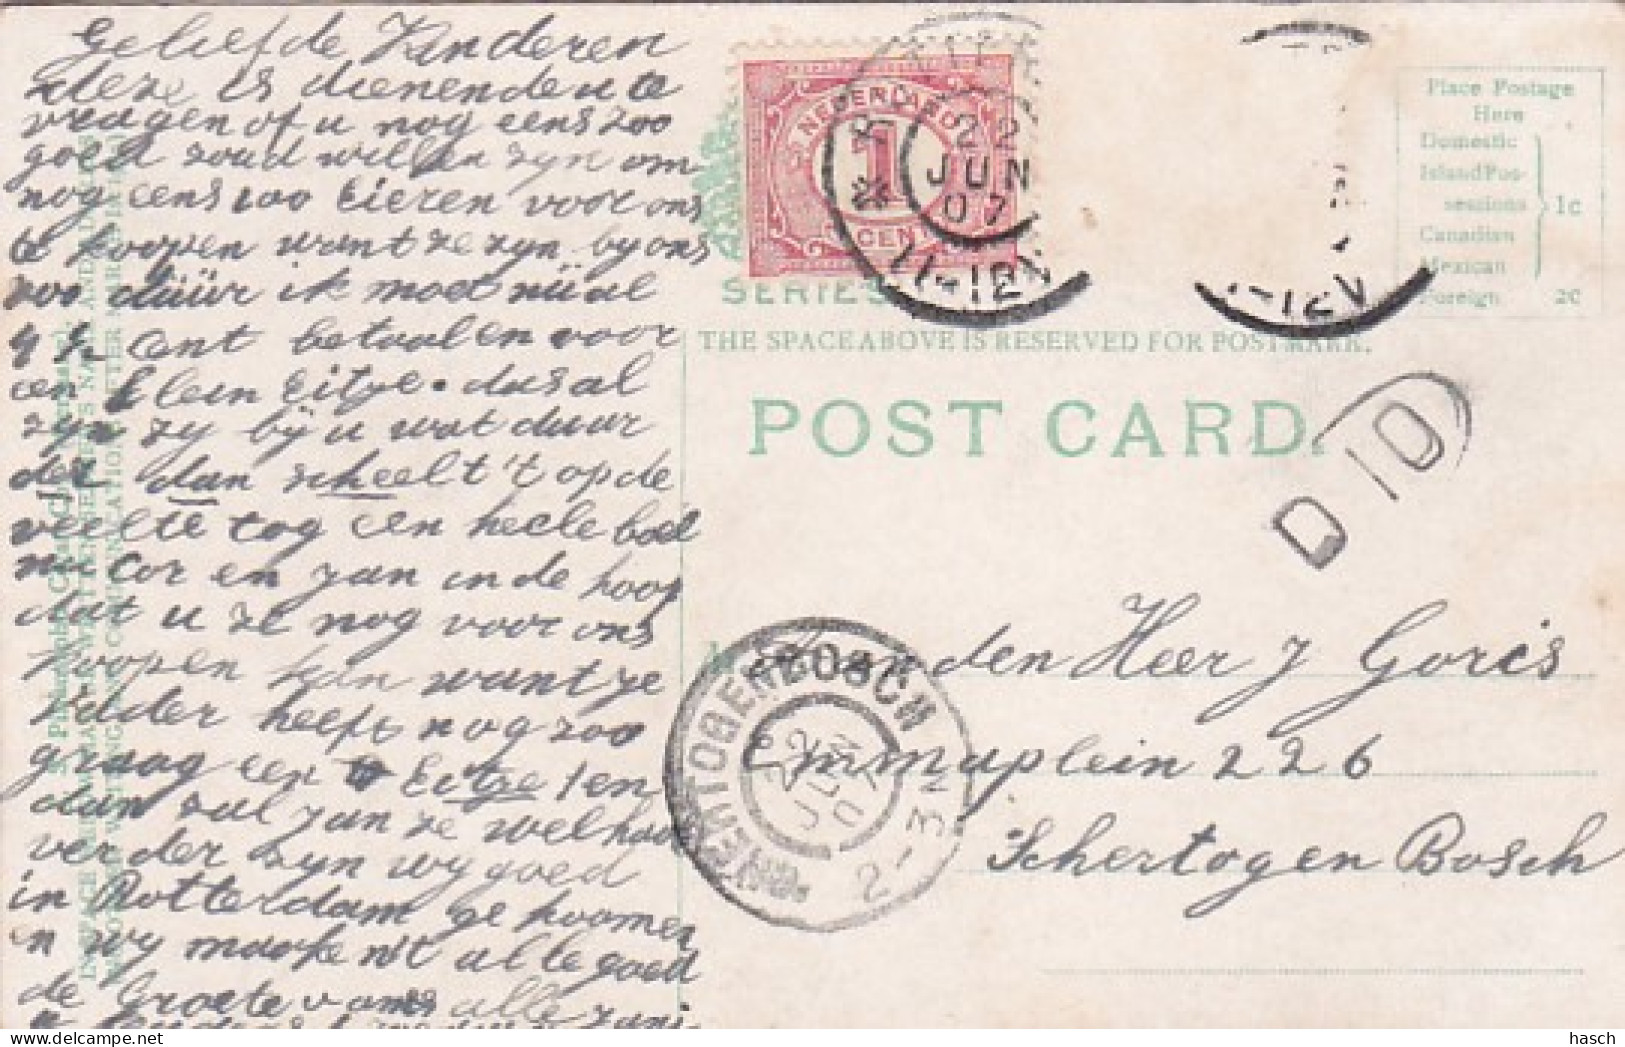 Geliefde Kinderen
deze is dienende u te
vragen of u nog eens zoo
goed zoud willen zyn om
nog eens 100 Eieren voor ons
te koopen want ze zyn by ons
zoo düür ik moet nü al
4½ Cent betaalen voor
een klein Eitje. dus al
zyn zy bÿ u wat duur
der dan scheelt 't op de
veelte tog een heele boel
nu Cor en Jan in de hoop
dat u ze nog voor ons
koopen kan want je
Vader heeft nog zoo
graag een Eitje en
dan zal Jan ze wel
verder zyn wy goed
in Rotterdam gekoomen
en wy maake 't alle goed
de Groete van alle
NEDERLAND
1
CENT
22
JUN
07
11-12V
1-12V
SERIES
Place Postage
Here
Domestic
Island Pos-
sessions
Canadian
Mexican
1c
Foreign 2c
THE SPACE ABOVE IS RESERVED FOR POSTMARK.
POST CARD.
D 10
'SHERTOGENBOSCH
22
JUN
07
2-3N
Aan den Heer J Goris
Emmaplein 226
Schertogen Bosch